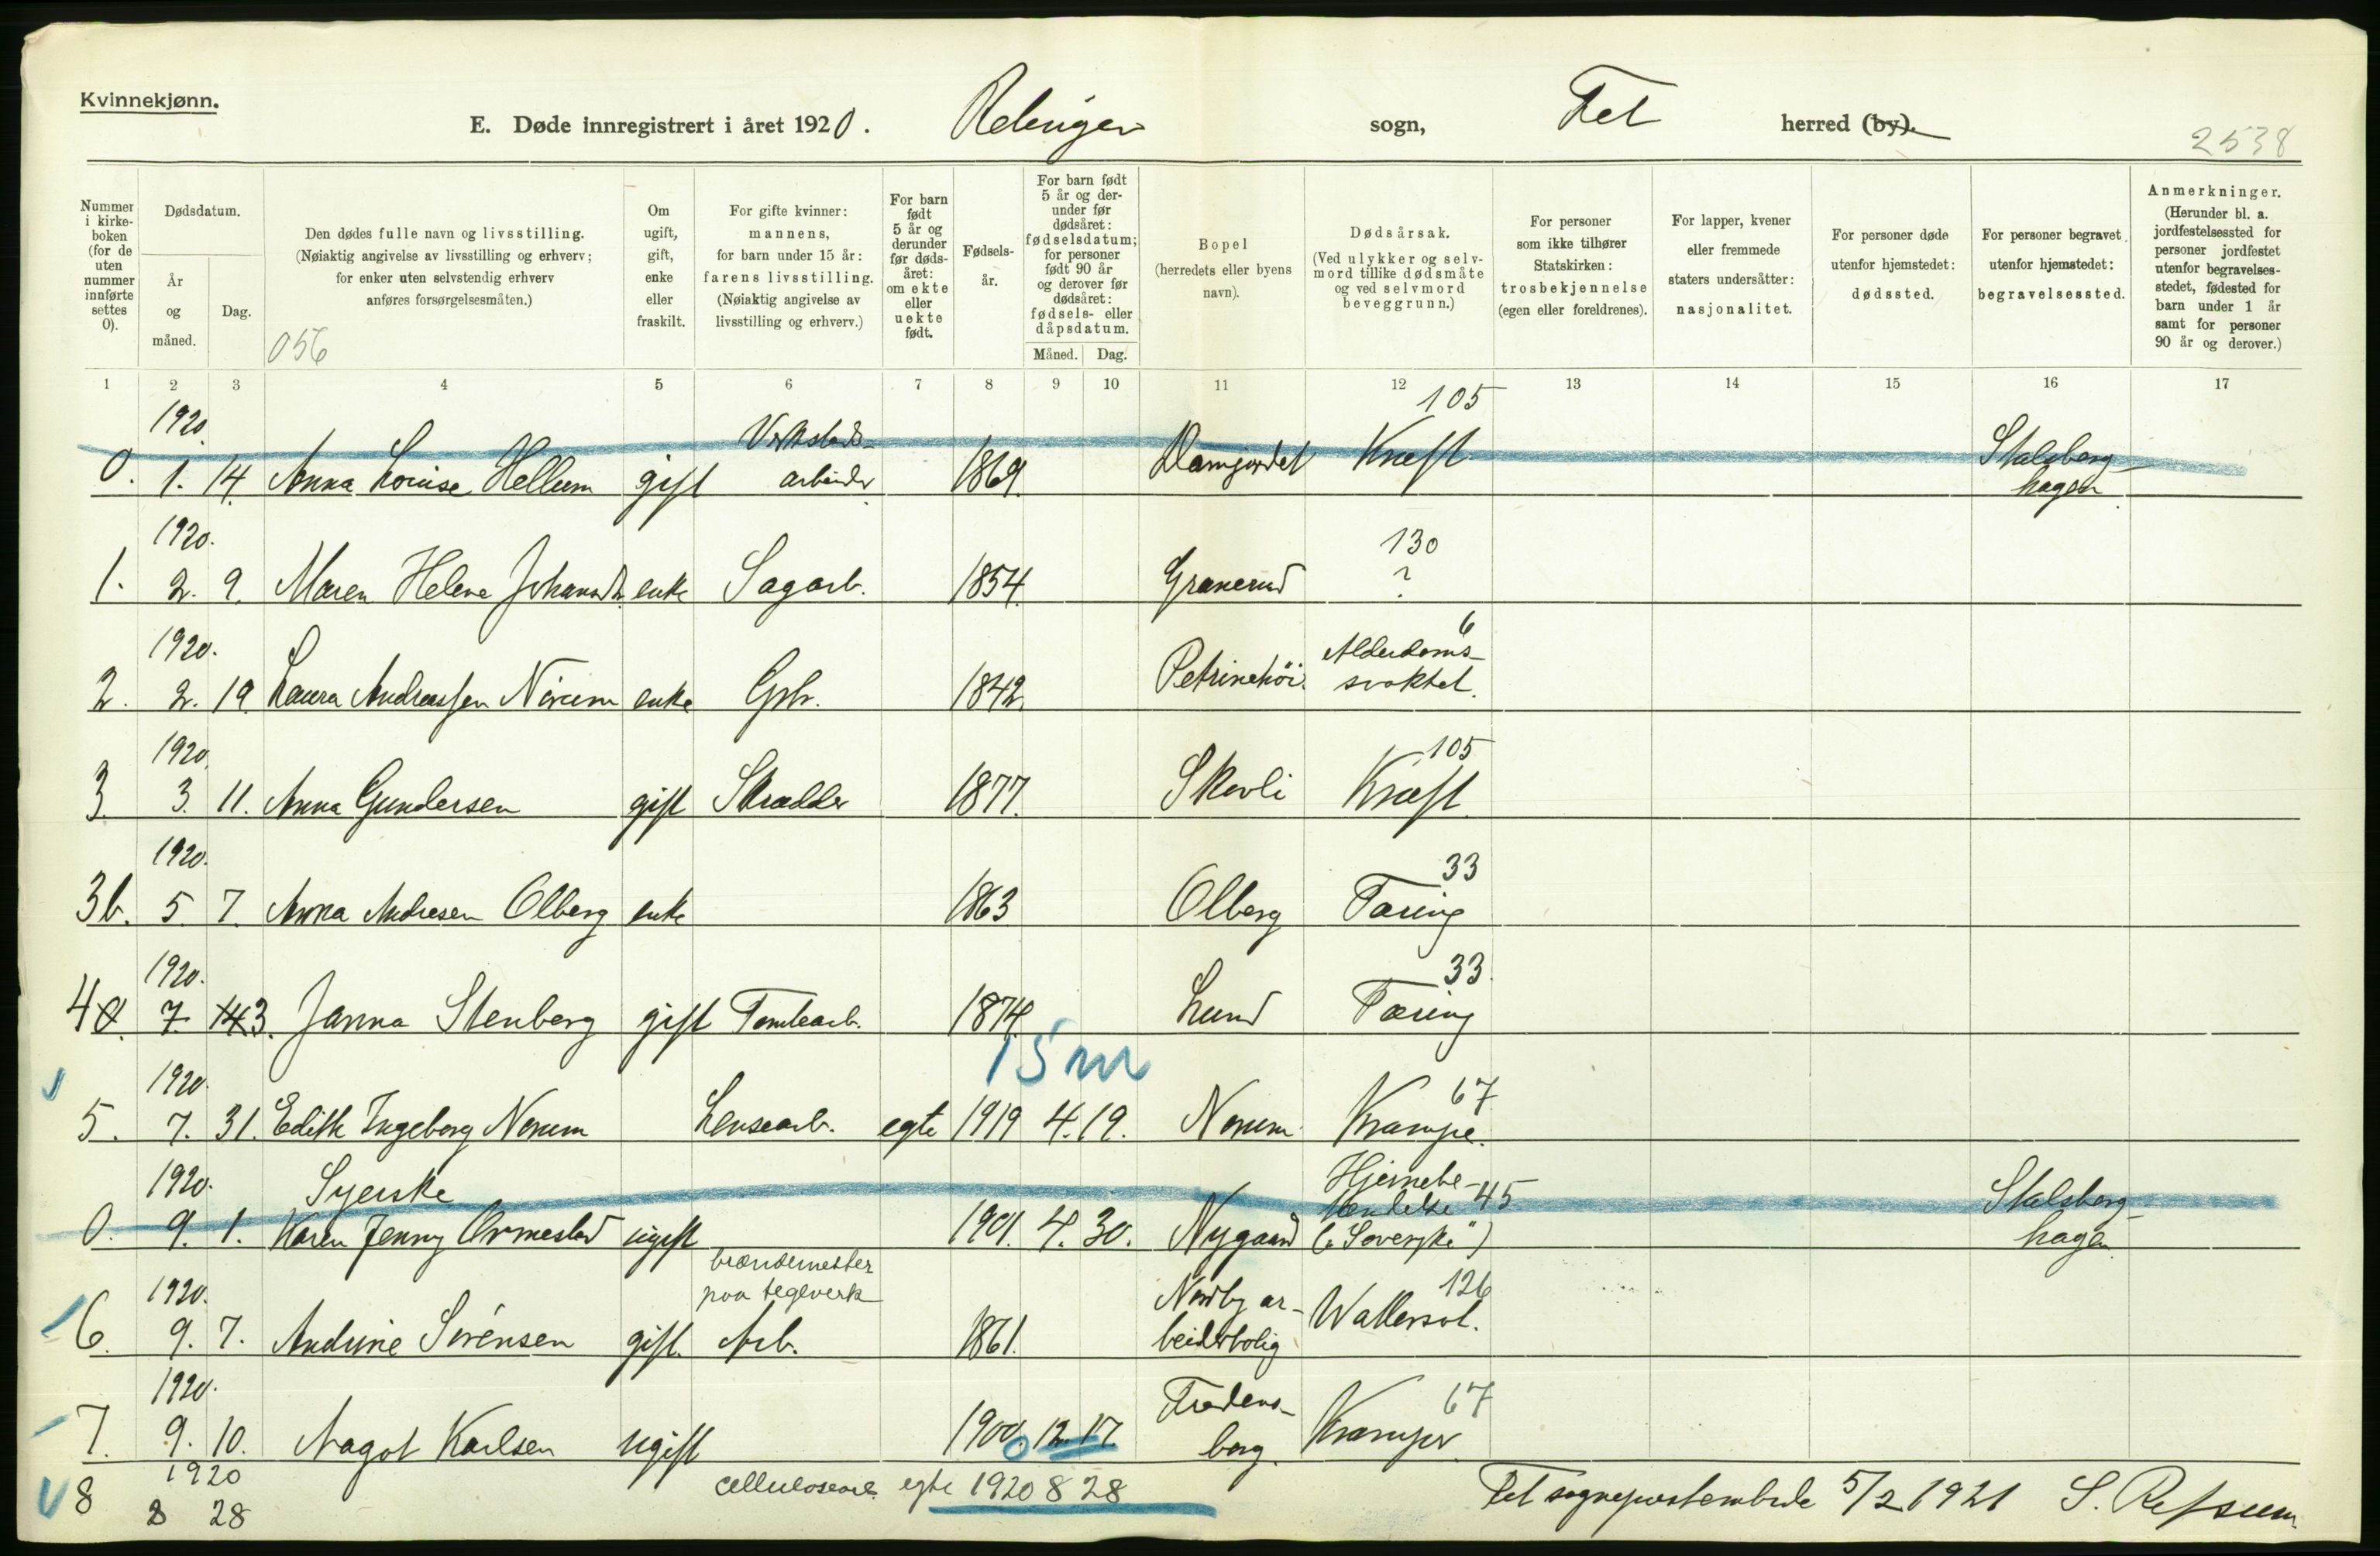 Kvinnekjønn.
E. Døde innregistrert i året 1920. Relingen sogn, Fet herred (by).
2538
Nummer i kirkeboken (for de uten nummer innførte settes 0).
Dødsdatum.
År og måned.
Dag.
Den dødes fulle navn og livsstilling.
(Nøiaktig angivelse av livsstilling og erhverv;
for enker uten selvstendig erhverv
anføres forsørgelsesmåten.)
056
Om ugift, gift, enke eller fraskilt.
For gifte kvinner: mannens, for barn under 15 år: farens livsstilling. (Nøiaktig angivelse av livsstilling og erhverv.)
For barn født 5 år og derunder før dødsåret: om ekte eller uekte født.
Fødselsår.
For barn født 5 år og derunder før dødsåret: fødselsdatum; for personer født 90 år og derover før dødsåret: fødsels- eller dåpsdatum.
Måned. Dag.
Bopel (herredets eller byens navn).
Dødsårsak.
(Ved ulykker og selvmord tillike dødsmåte og ved selvmord beveggrunn.)
For personer som ikke tilhører Statskirken: trosbekjennelse (egen eller foreldrenes).
For lapper, kvener eller fremmede staters undersåtter: nasjonalitet.
For personer døde utenfor hjemstedet: dødssted.
For personer begravet utenfor hjemstedet: begravelsessted.
Anmerkninger.
(Herunder bl. a. jordfestelsessted for personer jordfestet utenfor begravelsesstedet, fødested for barn under 1 år samt for personer 90 år og derover.)
1 2 3 4 5 6 7 8 9 10 11 12 13 14 15 16 17
1920. Verksteds- 105
0. 1. 14. Anna Louise Hellum gift arbeider 1869. Damgjerdet Kræft Stalsberg-
hagen
1920. 130
1. 2. 9. Maren Helene enke Sagarb. 1854. Granerud ?
1920. 6 Alderdoms-
2. 2. 19. Laura Andreassen Nörum enke Gbr. 1842. Petrinehöi svakhet.
1920. 105
3. 3. 11. Anna Gundersen gift Skrædder 1877. Skovli Kræft.
1920. 33
3b. 5 7. Anna Andresen Olberg enke 1863 Olberg Tæring
1920. 33.
4 0. 7 14 3. Janna Stenberg gift Tomtearb. 1874. Lund Tæring
15 m
1920. 67
5. 7. 31. Edith Ingeborg Norum Lensearb. egte 1919 4. 19. Norum Krampe.
1920. Syerske Hjernebe-
0. 9. 1. Karen Jenny Ormestad ugift 1901. 4. 30. Nygaard tændelse 45 Stalsberg-
("Sovesyke") hagen
brændemester
1920. paa teglverk Nordby ar- 126
6. 9. 7. Andrine Sörensen gift. Arb. 1861. beiderbolig Wattersot.
1920. Fredens- 67
7. 9. 10. Aagot Karlsen ugift 1900. 12. 17. borg Kramper
1920
8 8 28 cellulosearb. egte 1920 8 28
Fet sogneprestembede 5/2 1921 S. Refsum